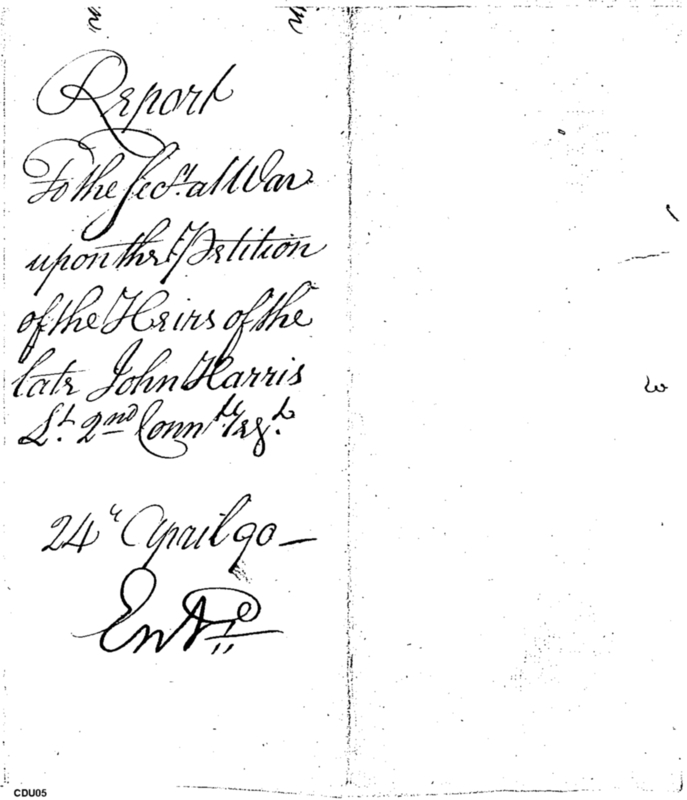 Report
To the Secy. at War
upon the Petition
of the Heirs of the
late John Harris
Lt. 2nd Connt. Regt.
24th April 90 —
Entd.
CDU05